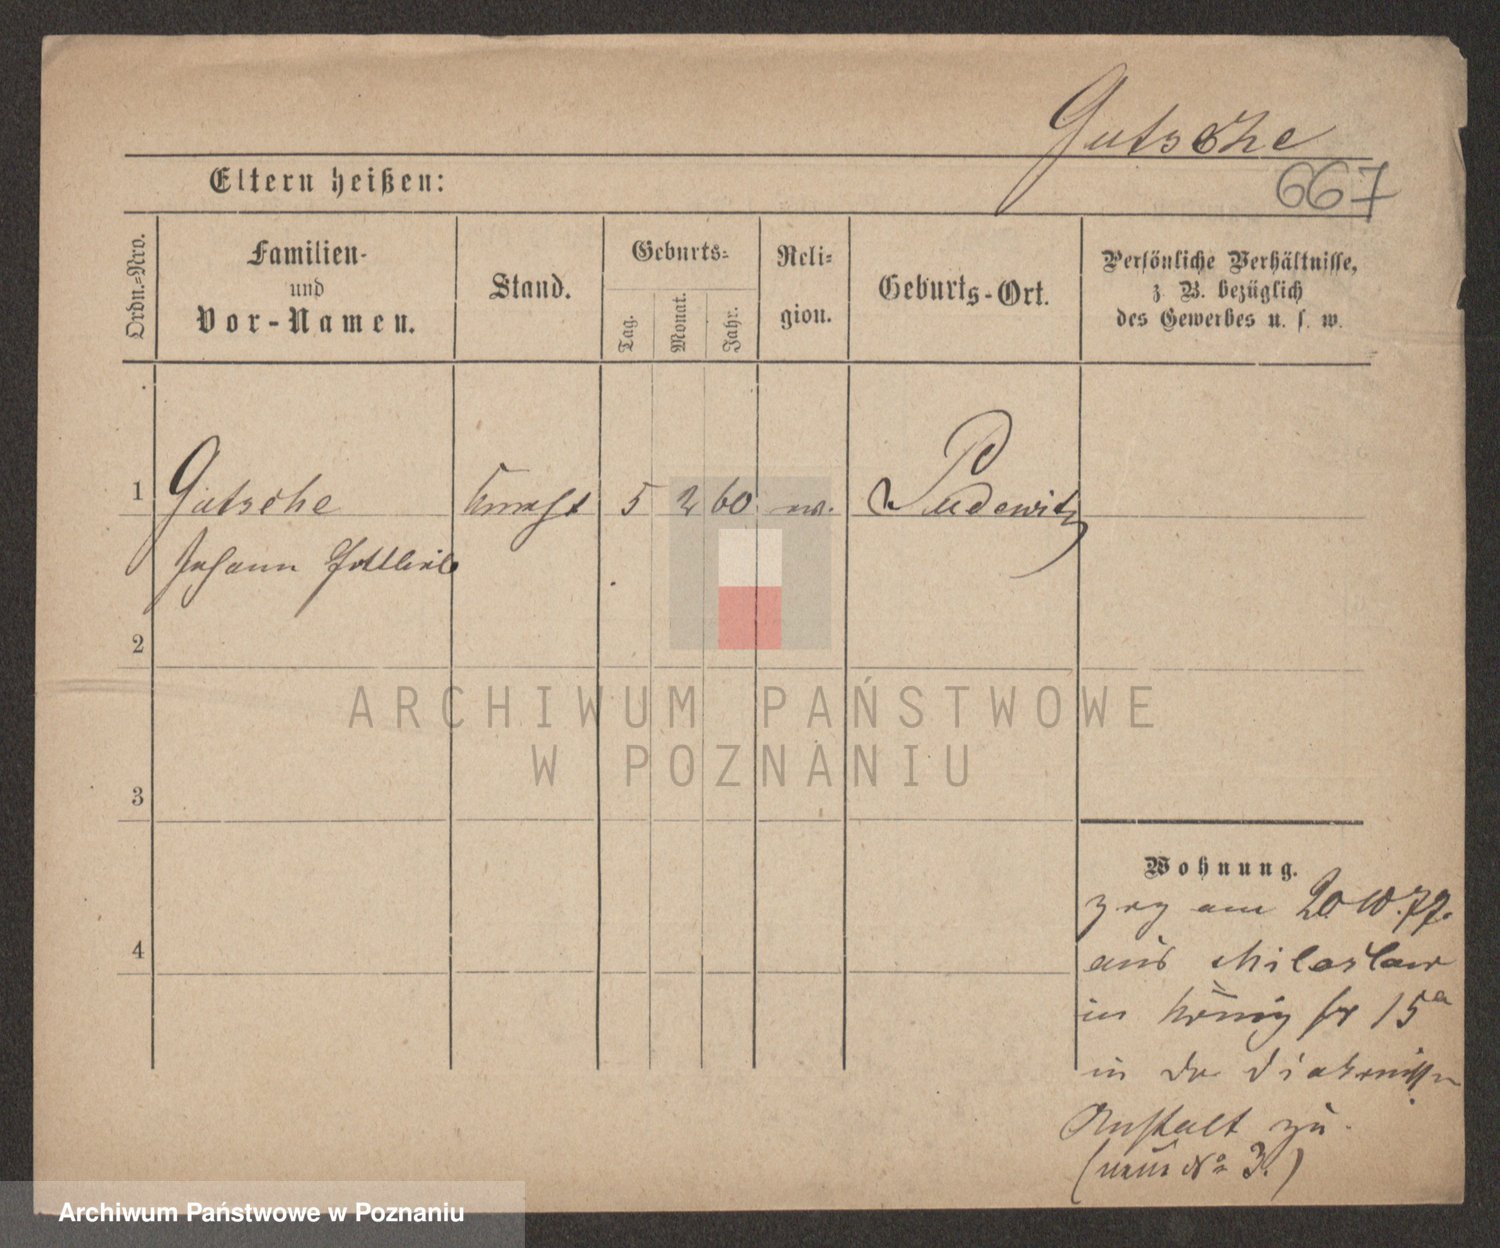 Gutsche
667
Eltern heißen:
Ordn.-Nro.
Familien-
und
Vor-Namen.
Stand.
Geburts-
Tag.
Monat.
Jahr.
Reli-
gion.
Geburts-Ort.
Persönliche Verhältnisse,
z. B. bezüglich
des Gewerbes u. s. w.
1
Gutsche
Johann Gottlieb
Knecht
5
2
60
ev.
Pudewitz
2
3
4
ARCHIWUM PAŃSTWOWE
W POZNANIU
Wohnung.
zog am 20.10.77.
aus Miloslaw
in König str 15a
in der Diakonissen
Anstalt zu.
(neue No 3.)
Archiwum Państwowe w Poznaniu